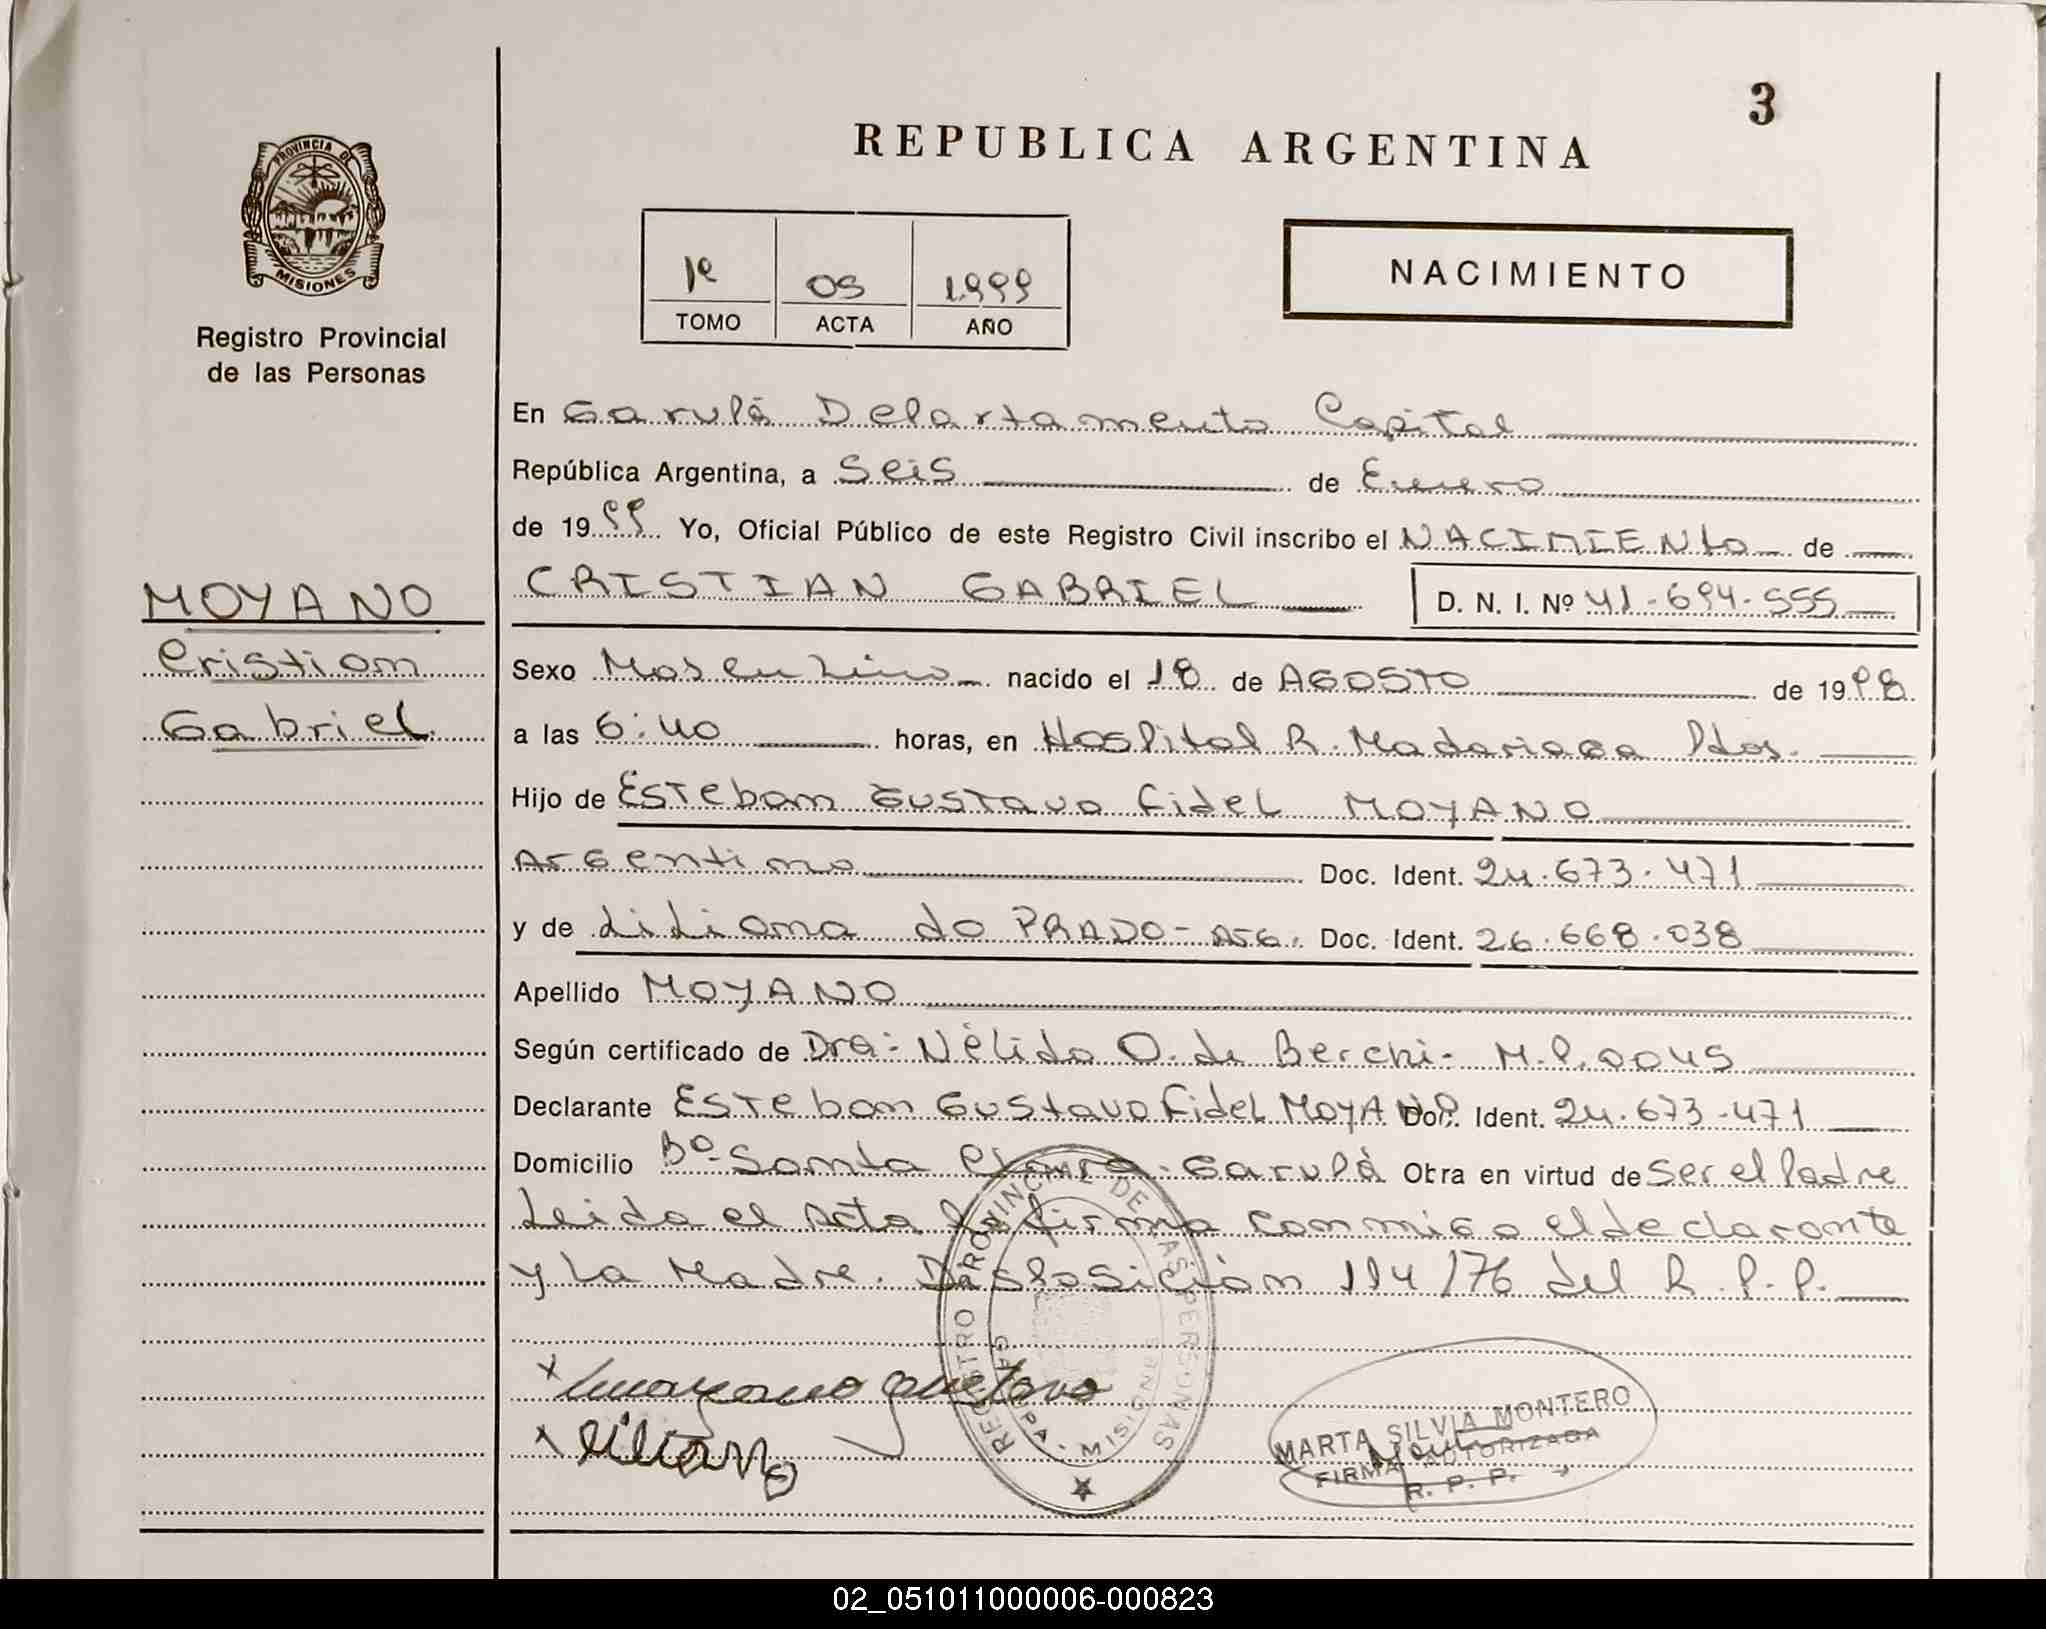 3
REPUBLICA ARGENTINA
PROVINCIA DE
MISIONES
Registro Provincial
de las Personas
1º 05 1.999
TOMO ACTA AÑO
NACIMIENTO
En Garupá Departamento Capital
República Argentina, a Seis de Enero
de 1999 Yo, Oficial Público de este Registro Civil inscribo el NACIMIENto de
CRISTIAN GABRIEL D. N. I. Nº 41-694-555
MOYANO
Cristian
Gabriel
Sexo Masculino nacido el 18 de AGOSTO de 1998
a las 6:40 horas, en Hospital R. Madariaga Pdas.
Hijo de Esteban Gustavo Fidel MOYANO
Argentino Doc. Ident. 24.673.471
y de Liliana do PRADO- Arg. Doc. Ident. 26.668.038
Apellido MOYANO
Según certificado de Dra: Nélida O. de Berchi- M.P. 0045
Declarante Esteban Gustavo Fidel MOYANO Doc. Ident. 24.673-471
Domicilio Bº Santa Clara - Garupá Obra en virtud de Ser el Padre
Leida el Acta la firma conmigo el declarante
y La Madre. Disposición 114/76 del R.P.P.
x moyano gustavo
x Liliana
REGISTRO PROVINCIAL DE LAS PERSONAS
GARUPA - MISIONES
MARTA SILVIA MONTERO
FIRMA AUTORIZADA
R. P. P.
02_051011000006-000823